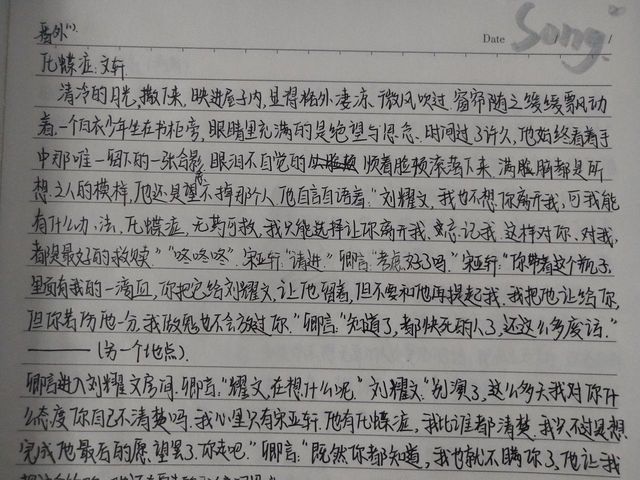 番外(1)
Date Song
瓦蝶症:文轩
清冷的月光,撒下来,映进屋子内,显得格外凄凉,微风吹过,窗帘随之缓缓飘动
着,一个白衣少年坐在书柜旁,眼睛里充满的是绝望与思念,时间过了许久,他始终看着手
中那唯一留下的一张合影,眼泪不自觉的顺着脸颊滚落下来,满脸脑都是所
想之人的模样,他还是望不掉那个人,他自言自语着:“刘耀文,我也不想你离开我,可我能
有什么办法,瓦蝶症,无药可救,我只能选择让你离开我、忘记我,这样对你、对我,
都是最好的救赎”“咚咚咚”.宋亚轩:“请进.”卿言:“考虑好了吗.”宋亚轩:“你带着这个瓶子,
里面有我的一滴血,你把它给刘耀文,让他留着,但不要和他再提起我.我把他让给你,
但你若伤他一分,我做鬼也不会放过你.”卿言:“知道了,都快死的人了,还这么多废话.”
———(另一个地点).
卿言进入刘耀文房间.卿言:“耀文,在想什么呢.”刘耀文:“别演了,这么多天我对你什
么态度你自己不清楚吗.我心里只有宋亚轩.他有瓦蝶症,我比谁都清楚.我只不过是想
完成他最后的愿望罢了.你走吧.”卿言:“既然你都知道,我也就不瞒你了,他让我